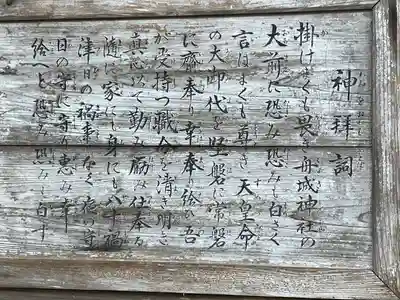 神拝詞
掛けまくも畏き舟城神社の
大前に恐み恐みも白さく
言はまくも尊き天皇命
の大御代を堅磐に常磐
に斎奉り幸奉給ひ吾
が受持つ職命を清き明き
真心以て勤み励み仕奉る
随に家にも身にも八十禍
津日の禍事なく夜の守
日の守に守り恵み幸
給へと恐み恐みも白す